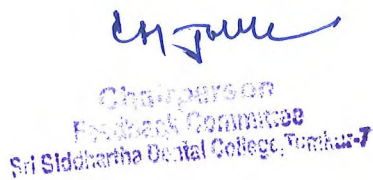 Chairperson
Feedback Committee
Sri Siddhartha Dental College, Tumkur-7